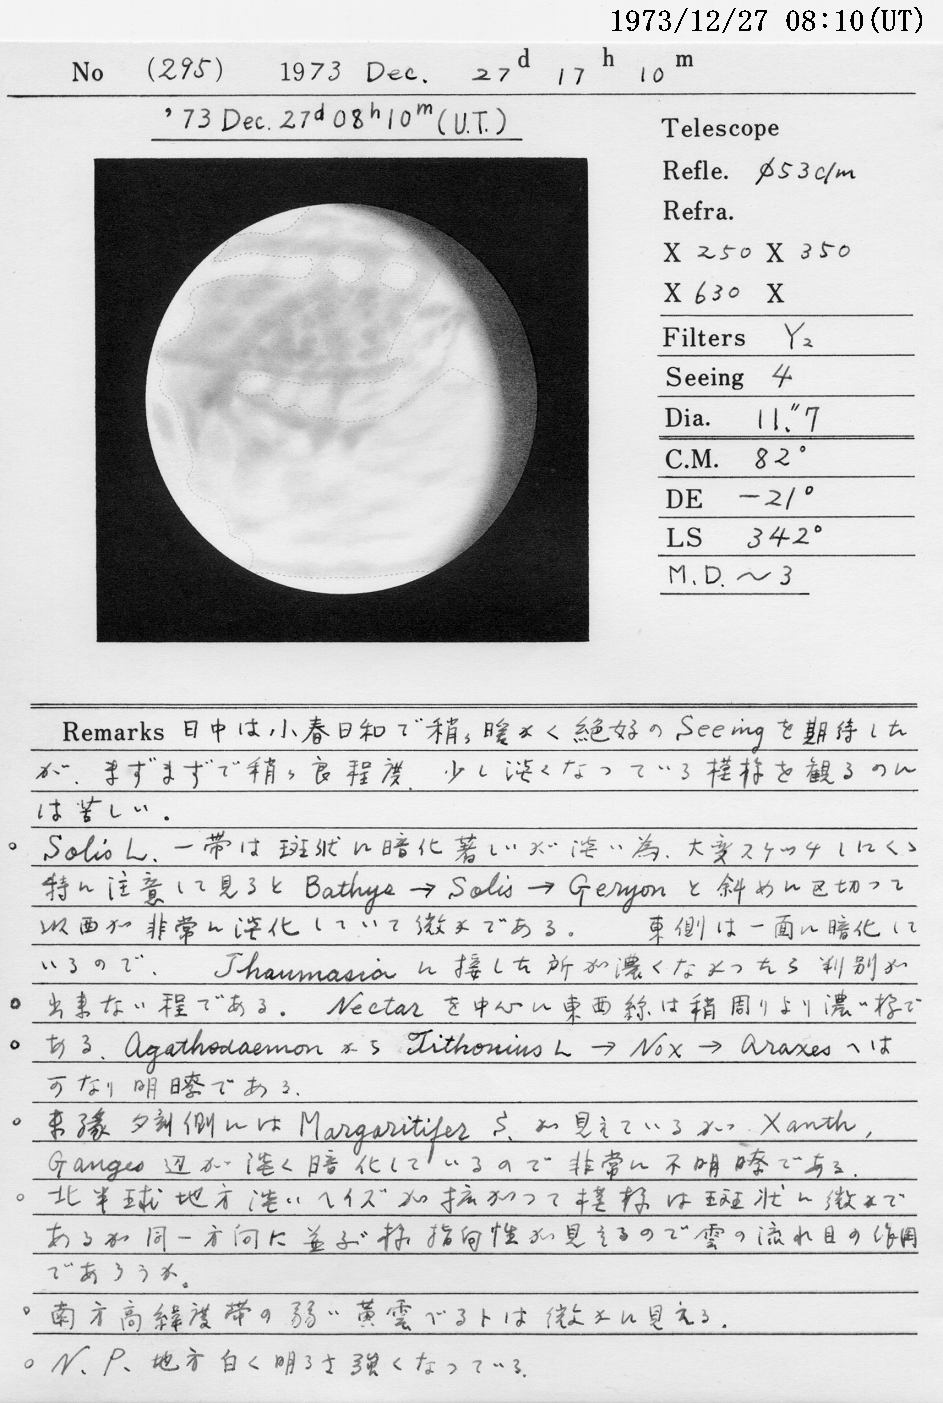 1973/12/27 08:10(UT)
No (295) 1973 Dec. 27d 17h 10m
'73 Dec. 27d 08h 10m (U.T.)
Telescope
Refle. φ53c/m
Refra.
X 250 X 350
X 630 X
Filters Y2
Seeing 4
Dia. 11."7
C.M. 82°
DE −21°
LS 342°
M.D. ~3
Remarks 日中は小春日和で稍々暖かく絶好の Seeing を期待した
が、まずまずで稍々良程度、少し淡くなっている模様を観るのん
は苦しい。
○ Solis L. 一帯は斑状に暗化著しいが淡い為、大変スケッチしにくゝ
特に注意して見ると Bathys → Solis → Geryon と斜めに区切って
以西が非常に淡化していて微かである。 東側は一面に暗化して
いるので、 Thaumasia に接した所が濃くなかったら判別が
○ 出来ない程である。 Nectar を中心に東西線は稍周りより濃い様で
○ ある、Agathodaemon から Tithonius L → Nox → Araxes へは
可なり明瞭である。
○ 東縁 夕刻側には Margaritifer S. が見えているが Xanth,
Ganges 辺が淡く暗化しているので非常に不明瞭である。
○ 北半球地方淡いヘイズが拡がって模様は斑状に微かで
あるが同一方向に並ぶ様指向性が見えるので雲の流れ目の作用
であろうか。
○ 南方高緯度帯の弱い黄雲ベルトは微かに見える。
○ N.P. 地方白く明るさ強くなっている。